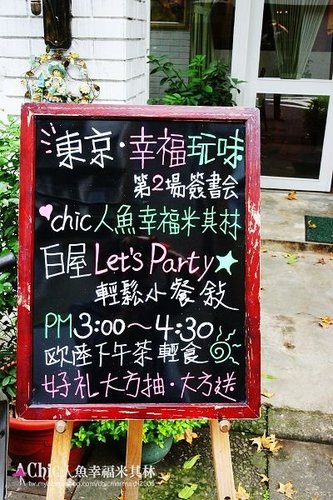 東京・幸福玩味
第2場簽書会
chic人魚幸福米其林
白屋Let's Party
輕鬆小餐敘
PM3:00~4:30
欧陸下午茶輕食
好礼大方抽・大方送
Chic人魚幸福米其林